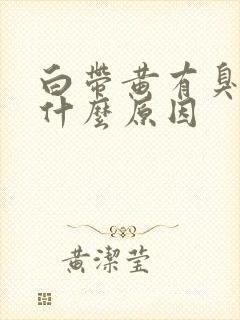 白帶黃有臭
什麼原因
黃潔瑩